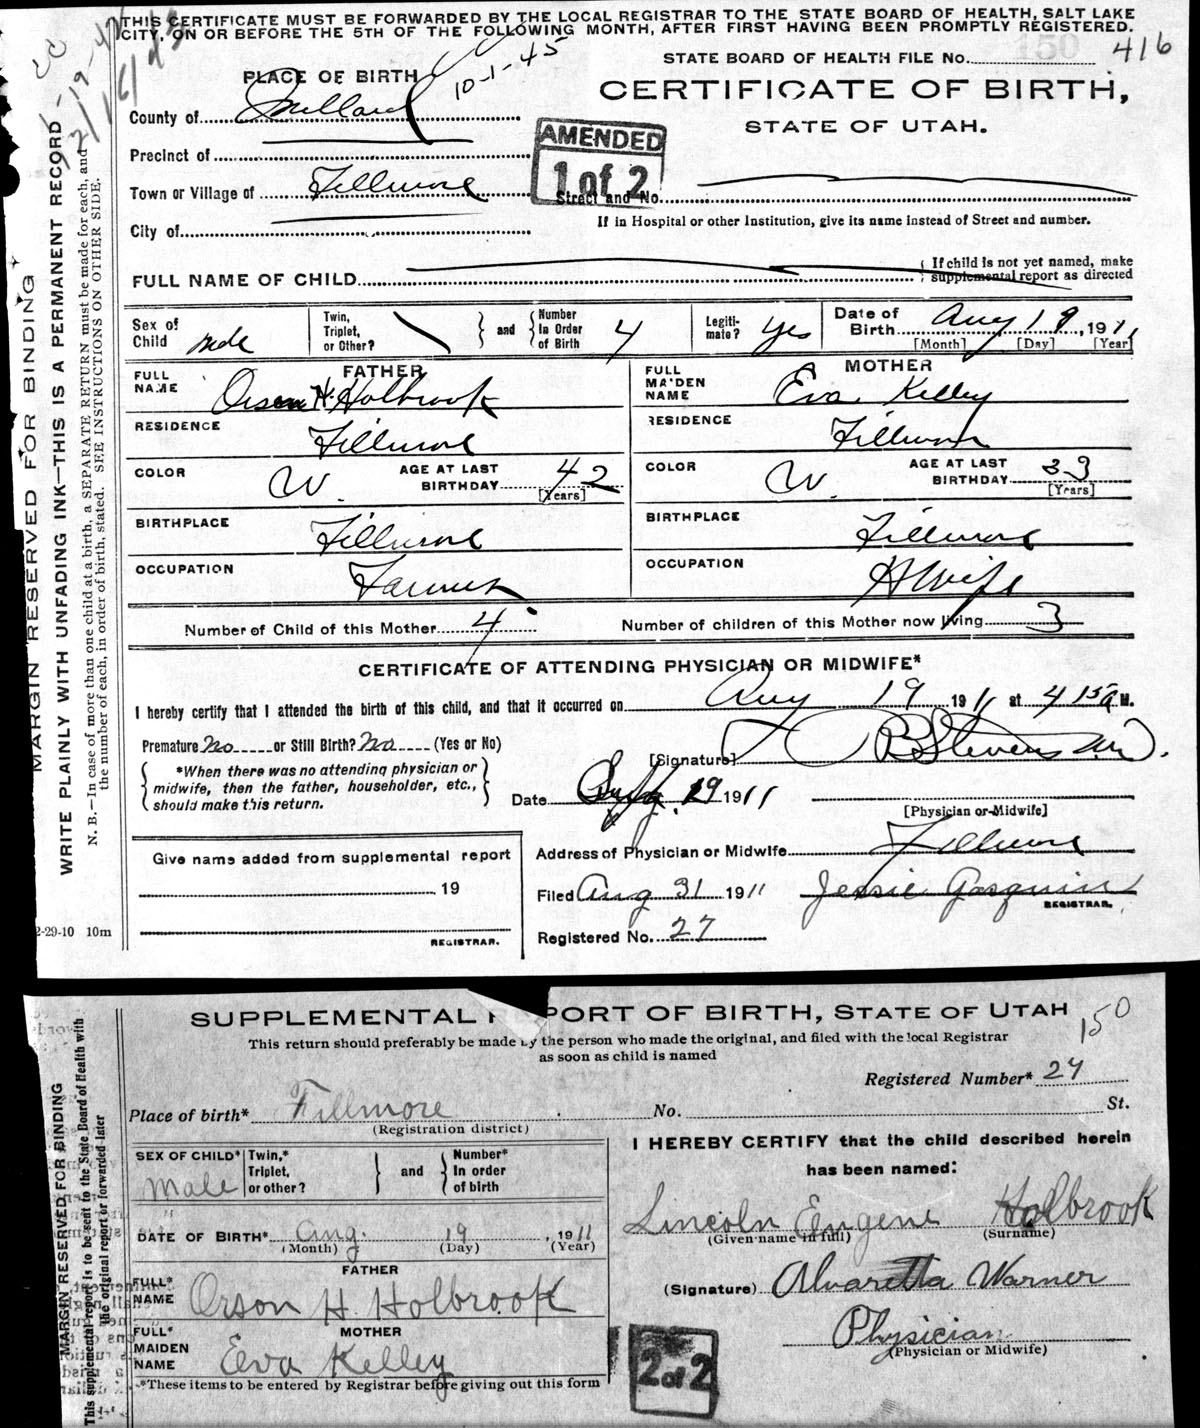 THIS CERTIFICATE MUST BE FORWARDED BY THE LOCAL REGISTRAR TO THE STATE BOARD OF HEALTH, SALT LAKE
CITY, ON OR BEFORE THE 5TH OF THE FOLLOWING MONTH, AFTER FIRST HAVING BEEN PROMPTLY REGISTERED.
STATE BOARD OF HEALTH FILE No. 150 416
PLACE OF BIRTH 10-1-45
CERTIFICATE OF BIRTH,
STATE OF UTAH.
County of Millard
AMENDED
1 of 2
Precinct of
Town or Village of Fillmore
Street and No.
If in Hospital or other Institution, give its name instead of Street and number.
City of
FULL NAME OF CHILD
If child is not yet named, make
supplemental report as directed
Sex of Child male
Twin, Triplet, or Other?
and
Number In Order of Birth 4
Legiti-mate? yes
Date of Birth Aug 19, 1911
[Month] [Day] [Year]
FATHER
FULL NAME Orson H. Holbrook
MOTHER
FULL MAIDEN NAME Eva Kelley
RESIDENCE Fillmore
RESIDENCE Fillmore
COLOR W. AGE AT LAST BIRTHDAY 42 [Years]
COLOR W. AGE AT LAST BIRTHDAY 33 [Years]
BIRTHPLACE Fillmore
BIRTHPLACE Fillmore
OCCUPATION Farmer
OCCUPATION H Wife
Number of Child of this Mother 4 Number of children of this Mother now living 3
CERTIFICATE OF ATTENDING PHYSICIAN OR MIDWIFE*
I hereby certify that I attended the birth of this child, and that it occurred on Aug 19 1911 at 4 15 a M.
Premature No or Still Birth? No (Yes or No)
[Signature] Stevens M.D.
*When there was no attending physician or
midwife, then the father, householder, etc.,
should make this return.
Date 19 1911
[Physician or Midwife]
Address of Physician or Midwife Fillmore
Give name added from supplemental report
19
REGISTRAR.
Filed Aug 31 1911 Jessie
REGISTRAR.
Registered No. 27
2-29-10 10m
MARGIN RESERVED FOR BINDING
WRITE PLAINLY WITH UNFADING INK—THIS IS A PERMANENT RECORD
N. B.—In case of more than one child at a birth, a SEPARATE RETURN must be made for each, and
the number of each, in order of birth, stated. SEE INSTRUCTIONS ON OTHER SIDE.
SUPPLEMENTAL REPORT OF BIRTH, STATE OF UTAH
150
This return should preferably be made by the person who made the original, and filed with the local Registrar
as soon as child is named
Registered Number* 27
Place of birth* Fillmore No. St.
(Registration district)
SEX OF CHILD* Male
Twin,* Triplet, or other?
and
Number* In order of birth
I HEREBY CERTIFY that the child described herein
has been named:
Lincoln Eugene Holbrook
(Given name in full) (Surname)
DATE OF BIRTH* Aug. 19, 1911
(Month) (Day) (Year)
FATHER
FULL* NAME Orson H. Holbrook
(Signature) Alvaretta Warner
Physician
(Physician or Midwife)
MOTHER
FULL* MAIDEN NAME Eva Kelley
2 of 2
*These items to be entered by Registrar before giving out this form
MARGIN RESERVED FOR BINDING
This supplemental report is to be sent to the State Board of Health with
the original report or forwarded later